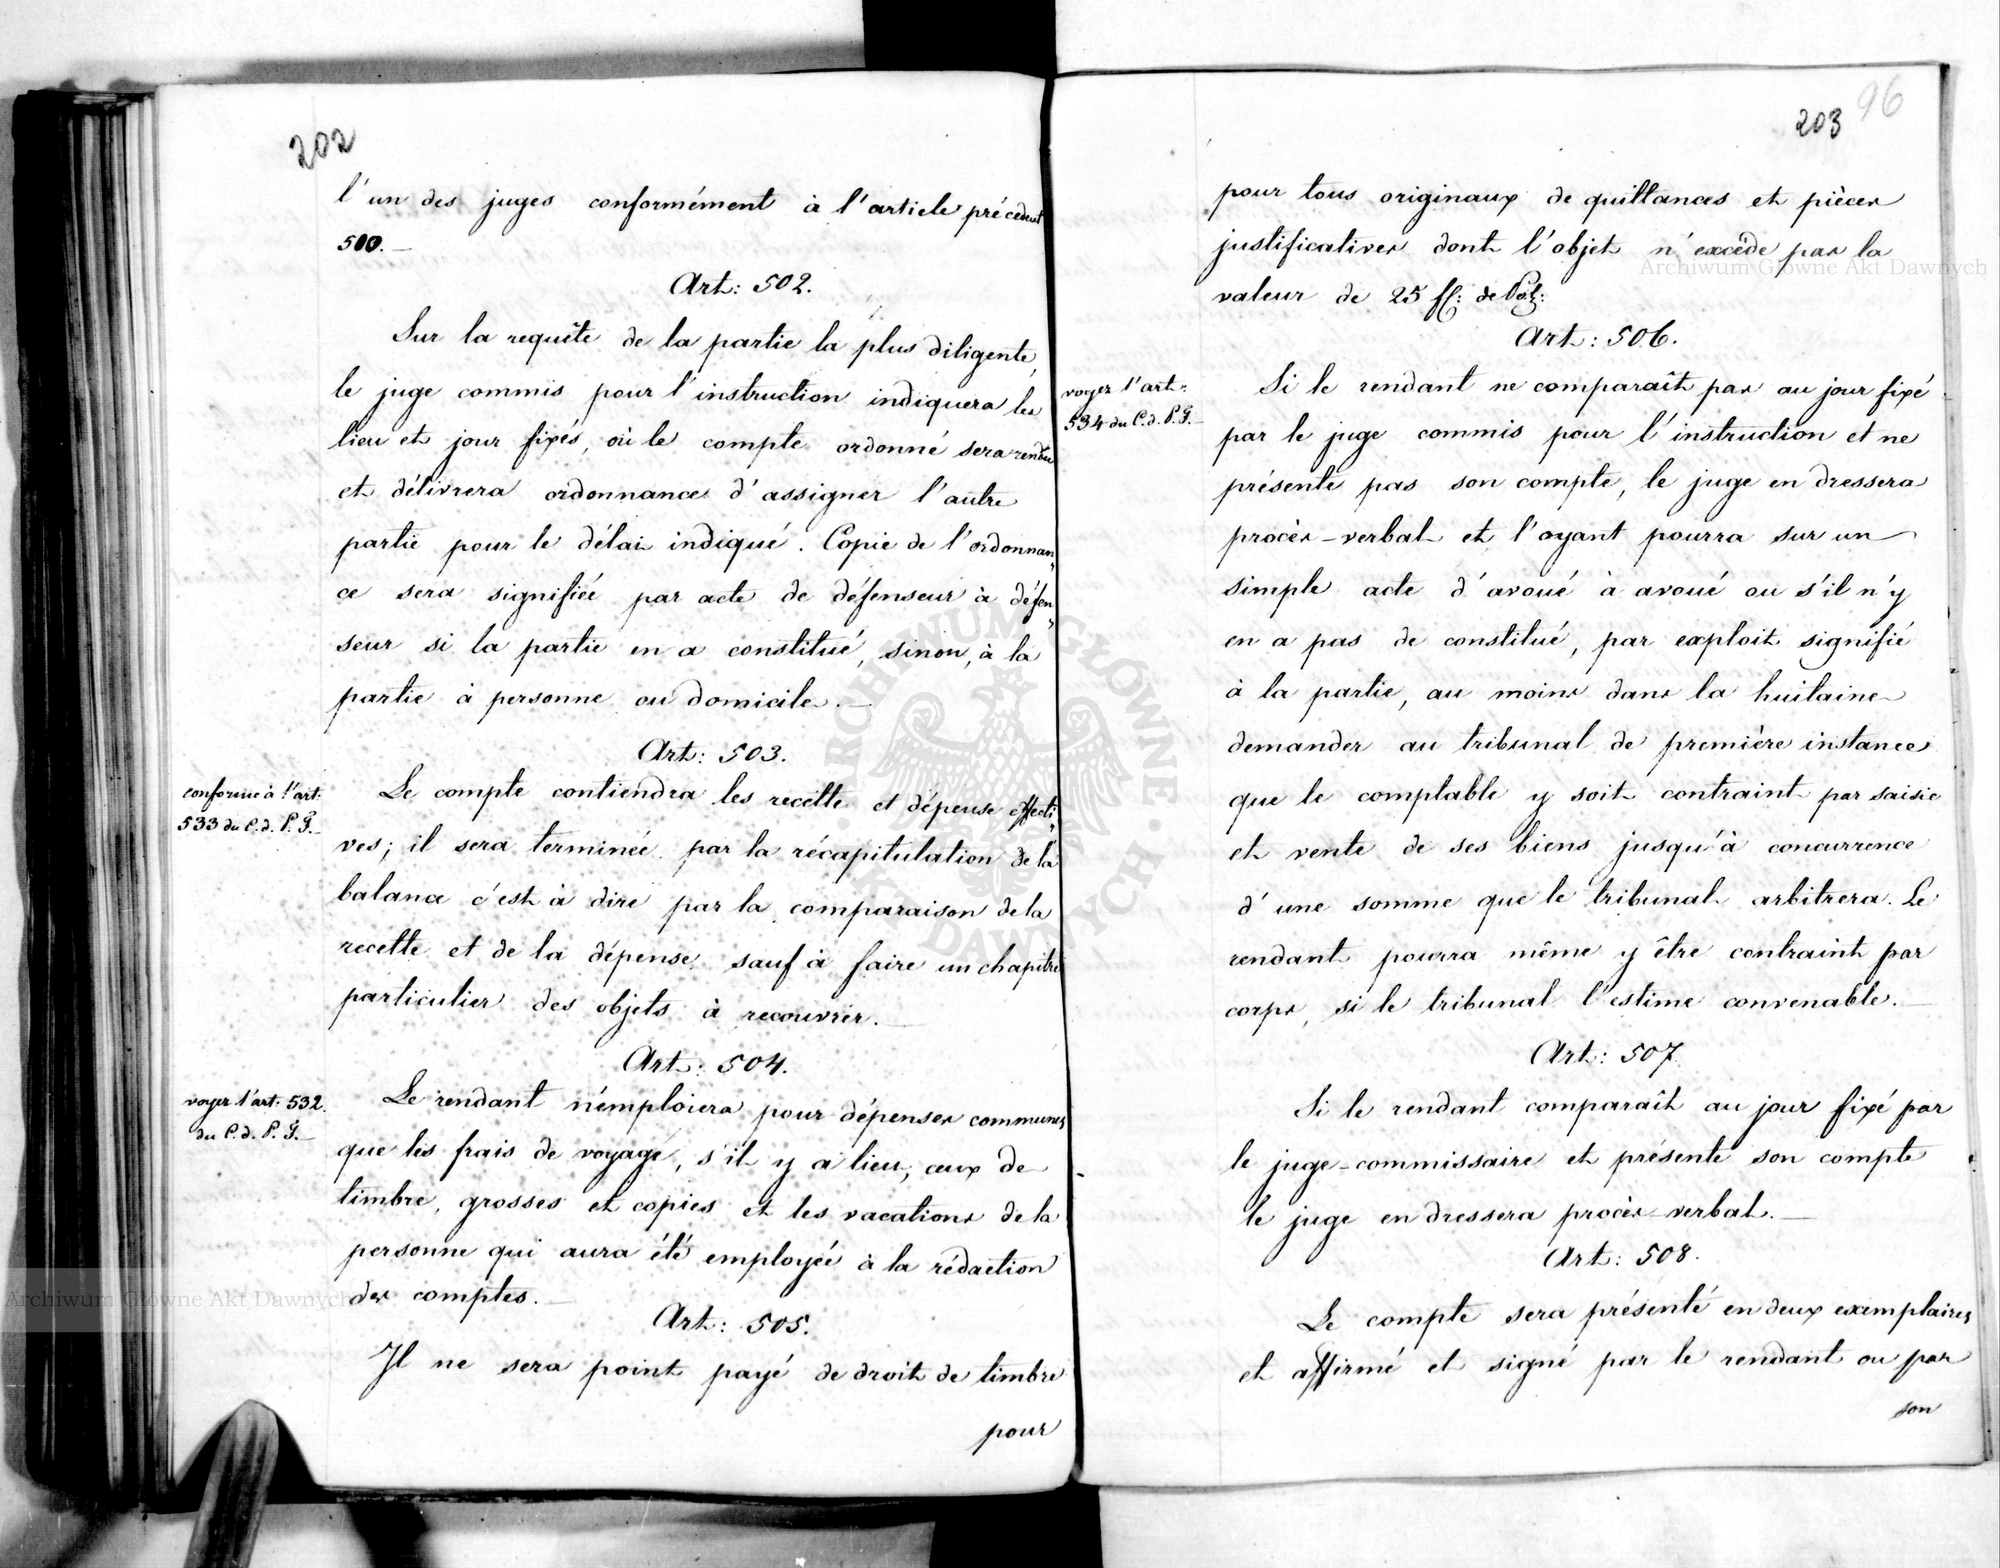 202
l'un des juges conformément à l'article précédent
500.
Art: 502.
Sur la requête de la partie la plus diligente,
le juge commis pour l'instruction indiquera les
lieu et jour fixés, où le compte ordonné sera rendu
et délivrera ordonnance d'assigner l'autre
partie pour le délai indiqué. Copie de l'ordonnan„
ce sera signifiée par acte de défenseur à défen„
seur si la partie en a constitué, sinon, à la
partie à personne ou domicile.
Art: 503.
conforme à l'art:
533 du C. d. P. G.
Le compte contiendra les recette et dépense effecti„
ves; il sera terminée par la récapitulation de la
balance c'est à dire par la comparaison de la
recette et de la dépense sauf à faire un chapitre
particulier des objets à recouvrir.
Art: 504.
voyez l'art: 532.
du C. d. P. G.
Le rendant n'emploiera pour dépenses communes
que les frais de voyage, s'il y a lieu, ceux de
timbre, grosses et copies et les vacations de la
personne qui aura été employée à la rédaction
des comptes.
Art: 505.
Il ne sera point payé de droit de timbre
pour
203
96
pour tous originaux de quittances et pièces
justificatives dont l'objet n'excède pas la
valeur de 25 ff: de Pol:
Art: 506.
voyez l'art:
534 du C. d. P. G.
Si le rendant ne comparaît pas au jour fixé
par le juge commis pour l'instruction et ne
présente pas son compte, le juge en dressera
procès-verbal et l'oyant pourra sur un
simple acte d'avoué à avoué ou s'il n'y
en a pas de constitué, par exploit signifié
à la partie, au moins dans la huitaine
demander au tribunal de première instance
que le comptable y soit contraint par saisie
et vente de ses biens jusqu'à concurrence
d'une somme que le tribunal arbitrera. Le
rendant pourra même y être contraint par
corps, si le tribunal l'estime convenable.
Art: 507.
Si le rendant comparaît au jour fixé par
le juge-commissaire et présente son compte
le juge en dressera procès-verbal.
Art: 508.
Le compte sera présenté en deux exemplaires
et affirmé et signé par le rendant ou par
son
Archiwum Główne Akt Dawnych
Archiwum Główne Akt Dawnych
ARCHIWUM GŁÓWNE AKT DAWNYCH